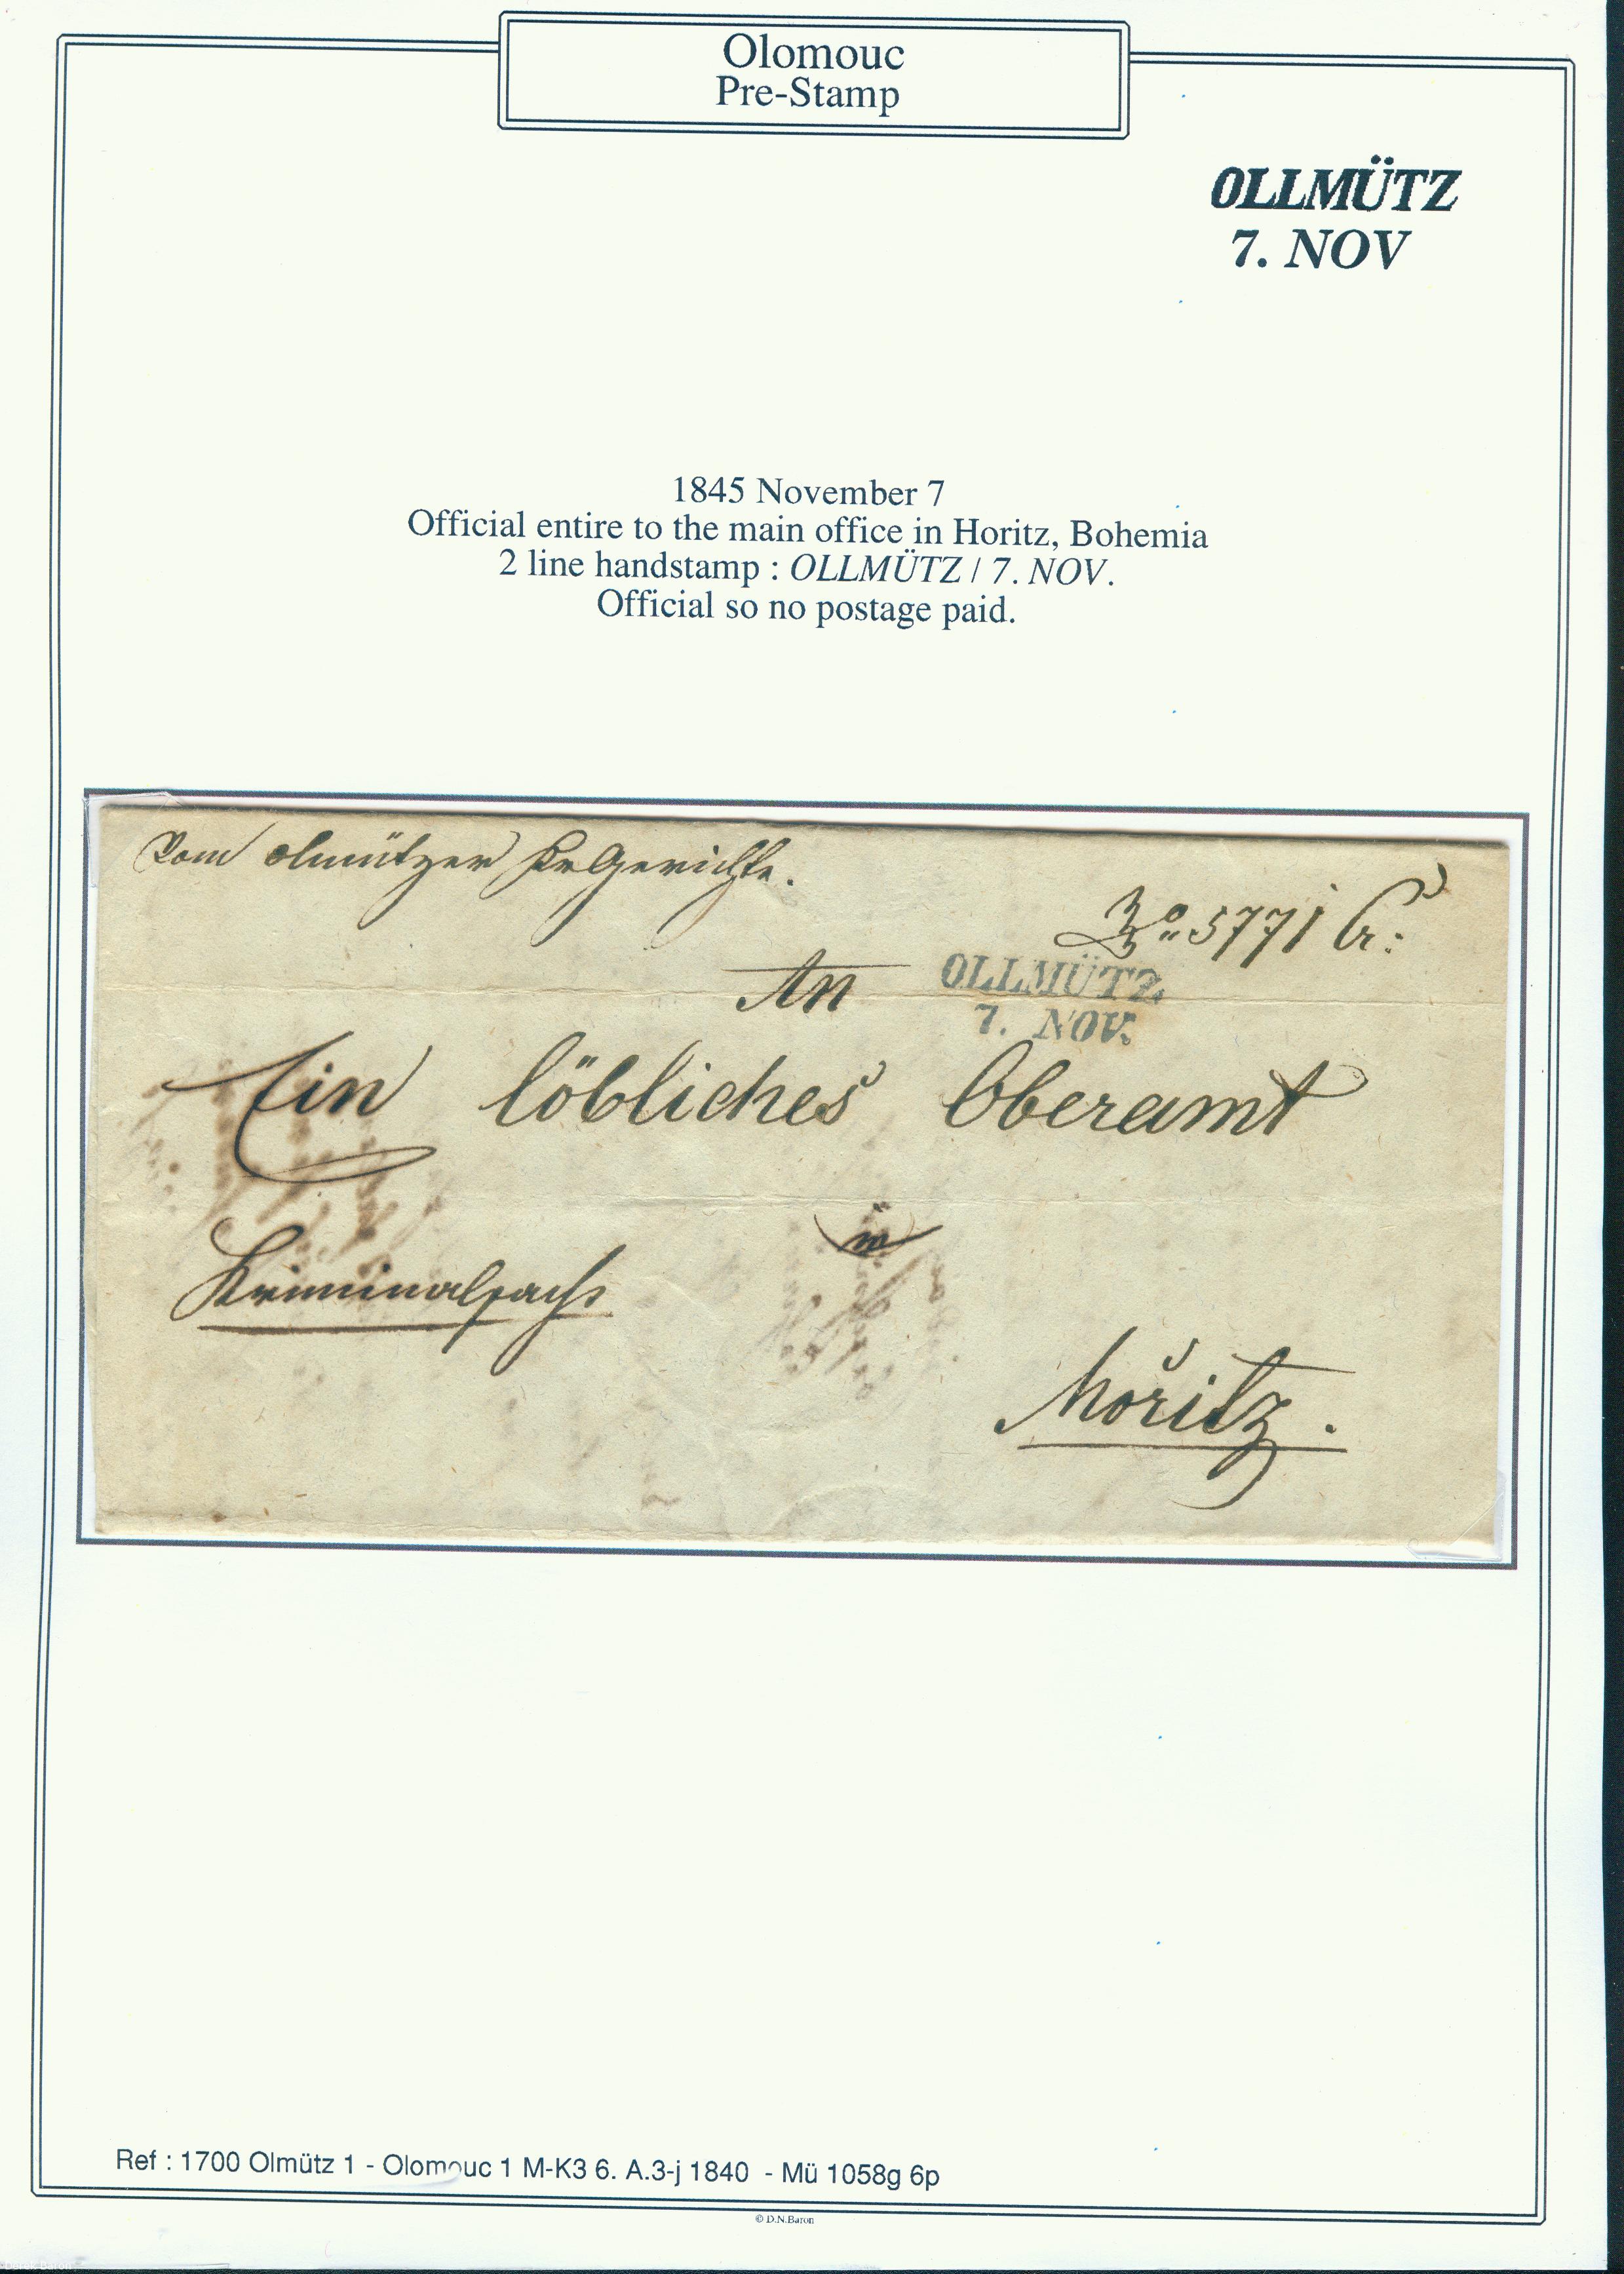 Olomouc
Pre-Stamp
OLLMÜTZ
7. NOV
1845 November 7
Official entire to the main office in Horitz, Bohemia
2 line handstamp : OLLMÜTZ / 7. NOV.
Official so no postage paid.
Vom Olmützer KrGerichte.
5771
An
OLLMÜTZ.
7. NOV.
Ein löbliches Oberamt
in
Kriminalsache
Hořitz.
Ref : 1700 Olmütz 1 - Olomouc 1 M-K3 6. A.3-j 1840 - Mü 1058g 6p
© D.N.Baron